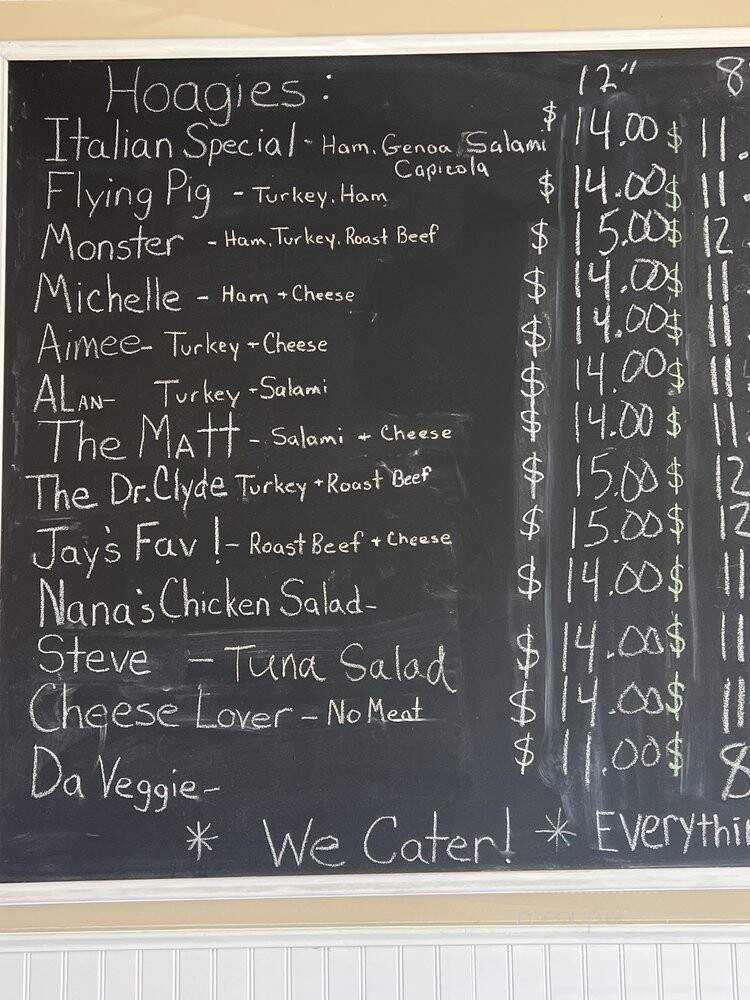 Hoagies: 12" 8
Italian Special - Ham, Genoa Salami $ 14.00 $ 11.
Capicola
Flying Pig - Turkey, Ham $ 14.00 $ 11.
Monster - Ham, Turkey, Roast Beef $ 15.00 $ 12
Michelle - Ham + Cheese $ 14.00 $ 11.
Aimee - Turkey + Cheese $ 14.00 $ 11.
ALAN - Turkey + Salami $ 14.00 $ 11
The MATT - Salami + Cheese $ 14.00 $ 11.
The Dr. Clyde Turkey + Roast Beef $ 15.00 $ 12
Jay's Fav! - Roast Beef + Cheese $ 15.00 $ 12
Nana's Chicken Salad - $ 14.00 $ 11
Steve - Tuna Salad $ 14.00 $ 11
Cheese Lover - No Meat $ 14.00 $ 11
Da Veggie - $ 11.00 $ 8
* We Cater! * Everythin